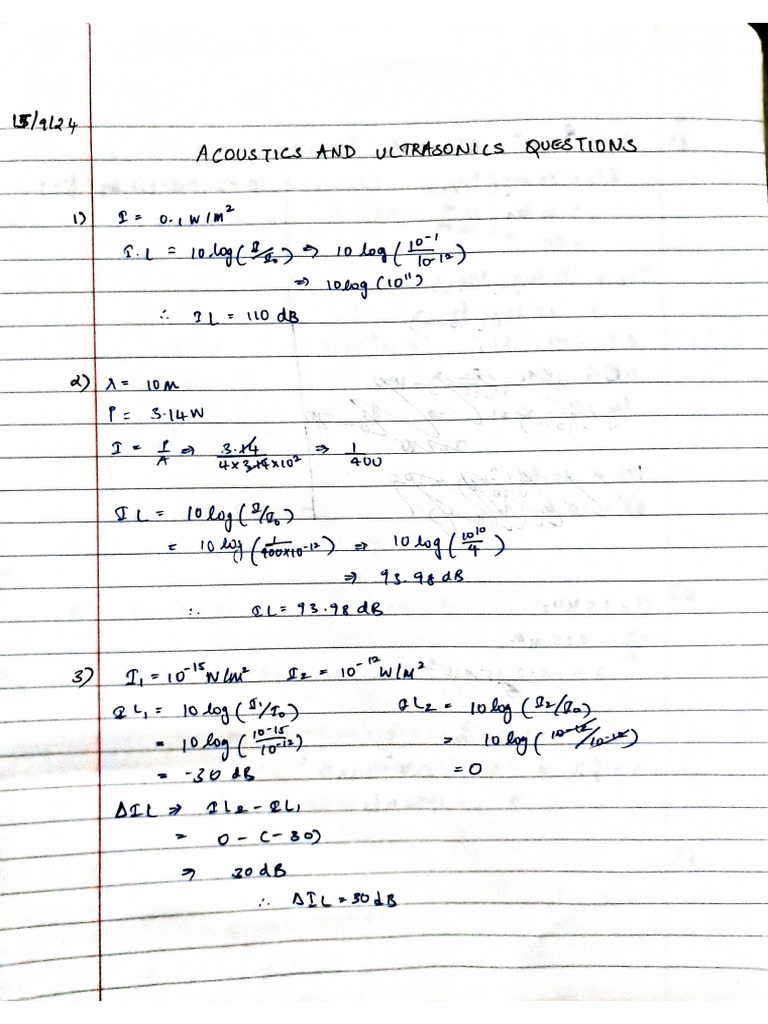 15/9/24
ACOUSTICS AND ULTRASONICS QUESTIONS
1) I = 0.1 W/m²
I.L = 10 log (I/I₀) ⇒ 10 log (10⁻¹/10⁻¹²)
⇒ 10 log (10¹¹)
∴ IL = 110 dB
2) λ = 10m
P = 3.14 W
I = P/A ⇒ 3.14/4×3.14×10² ⇒ 1/400
IL = 10 log (I/I₀)
= 10 log (1/400×10⁻¹²) ⇒ 10 log (10¹⁰/4)
⇒ 93.98 dB
∴ IL = 93.98 dB
3) I₁ = 10⁻¹⁵ W/m² I₂ = 10⁻¹² W/m²
IL₁ = 10 log (I₁/I₀) IL₂ = 10 log (I₂/I₀)
= 10 log (10⁻¹⁵/10⁻¹²) = 10 log (10⁻¹²/10⁻¹²)
= -30 dB = 0
ΔIL ⇒ IL₂ - IL₁
= 0 - (-30)
⇒ 30 dB
∴ ΔIL = 30 dB